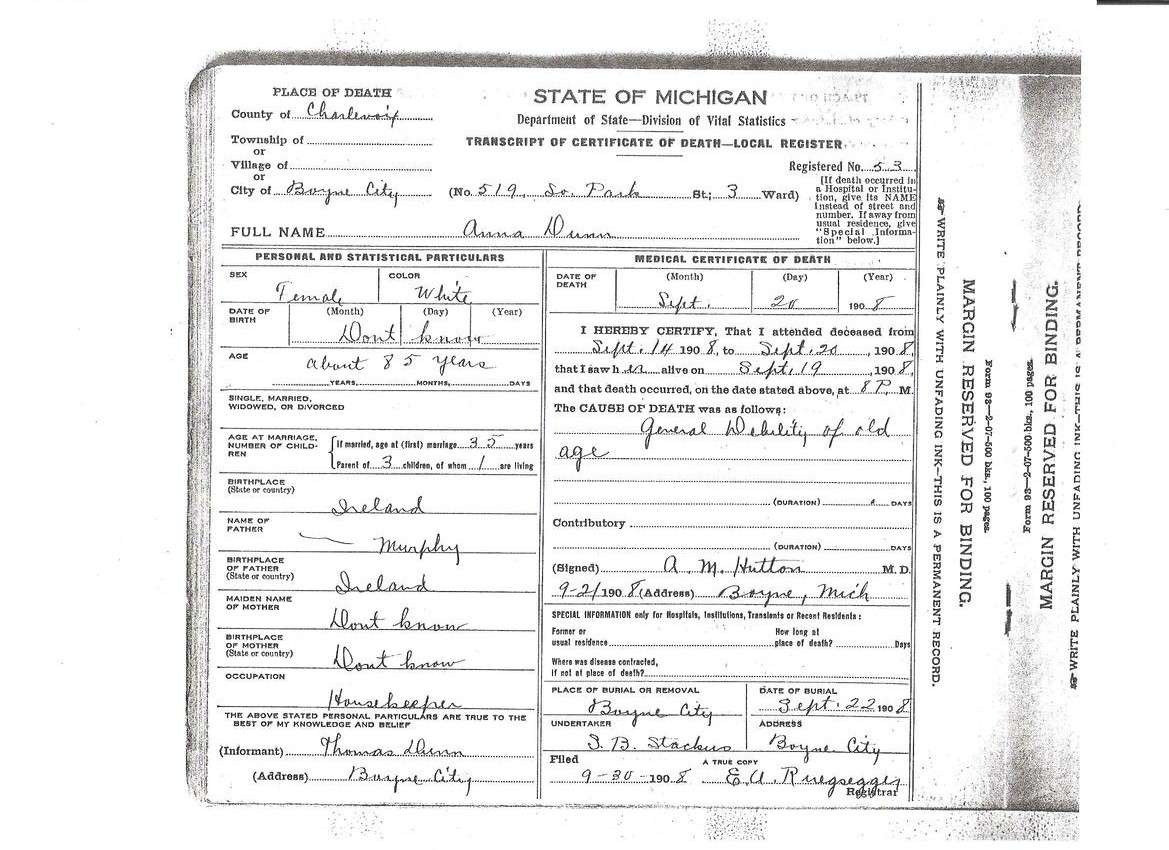 PLACE OF DEATH
County of Charlevoix
Township of
or
Village of
or
City of Boyne City
STATE OF MICHIGAN
Department of State—Division of Vital Statistics
TRANSCRIPT OF CERTIFICATE OF DEATH—LOCAL REGISTER
Registered No. 53
(No. 519, So. Park St.; 3 Ward)
[If death occurred in
a Hospital or Institu-
tion, give its NAME
instead of street and
number. If away from
usual residence, give
"Special Informa-
tion" below.]
FULL NAME Anna Dunn
PERSONAL AND STATISTICAL PARTICULARS
SEX Female
COLOR White
DATE OF BIRTH (Month) (Day) (Year)
Dont know
AGE about 85 years
YEARS, MONTHS, DAYS
SINGLE, MARRIED,
WIDOWED, OR DIVORCED
AGE AT MARRIAGE,
NUMBER OF CHILD-
REN
If married, age at (first) marriage 35 years
Parent of 3 children, of whom 1 are living
BIRTHPLACE
(State or country)
Ireland
NAME OF
FATHER
Murphy
BIRTHPLACE
OF FATHER
(State or country)
Ireland
MAIDEN NAME
OF MOTHER
Dont know
BIRTHPLACE
OF MOTHER
(State or country)
Dont know
OCCUPATION
Housekeeper
THE ABOVE STATED PERSONAL PARTICULARS ARE TRUE TO THE
BEST OF MY KNOWLEDGE AND BELIEF
(Informant) Thomas Dunn
(Address) Boyne City
MEDICAL CERTIFICATE OF DEATH
DATE OF
DEATH
(Month) (Day) (Year)
Sept. 20 1908
I HEREBY CERTIFY, That I attended deceased from
Sept. 14 1908, to Sept. 20, 1908,
that I saw her alive on Sept. 19, 1908,
and that death occurred, on the date stated above, at 8 P. M.
The CAUSE OF DEATH was as follows:
General Debility of old
age
(DURATION) DAYS
Contributory
(DURATION) DAYS
(Signed) A. M. Hutton M.D.
9-21 1908 (Address) Boyne, Mich
SPECIAL INFORMATION only for Hospitals, Institutions, Transients or Recent Residents:
Former or
usual residence
How long at
place of death? Days
Where was disease contracted,
if not at place of death?
PLACE OF BURIAL OR REMOVAL
Boyne City
DATE OF BURIAL
Sept. 22 1908
UNDERTAKER
S. B. Stackus
ADDRESS
Boyne City
Filed
9-30-1908
A TRUE COPY
E. A. Ruegsegger
Registrar
WRITE PLAINLY WITH UNFADING INK—THIS IS A PERMANENT RECORD.
MARGIN RESERVED FOR BINDING.
Form 93—2-07-500 bks., 100 pages.
Form 93—2-07-500 bks., 100 pages.
MARGIN RESERVED FOR BINDING.
WRITE PLAINLY WITH UNFADING INK—THIS IS A PERMANENT RECORD.